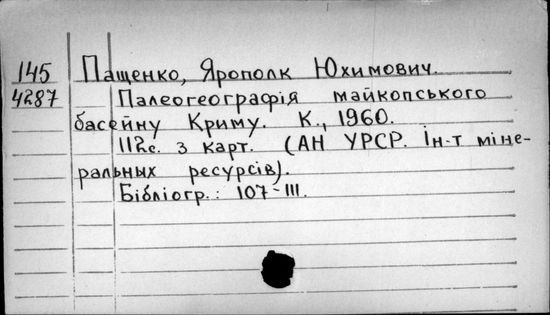 145 Пащенко, Ярополк Юхимович.
4287 Палеогеографія майкопського
басейну Криму. К., 1960.
112с. з карт. (АН УРСР. Ін-т міне-
ральных ресурсів).
Бібліогр.: 107-111.